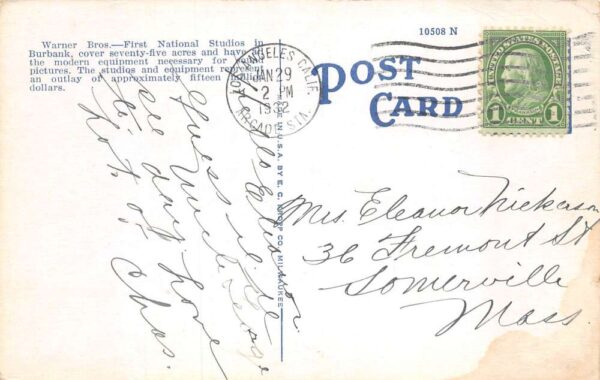 Warner Bros.—First National Studios in
Burbank, cover seventy-five acres and have all
the modern equipment necessary for sound
pictures. The studios and equipment represent
an outlay of approximately fifteen million
dollars.
10508 N
LOS ANGELES CALIF.
JAN 29
2 PM
1932
ARCADE STA.
UNITED STATES POSTAGE
1 CENT 1
POST
CARD
MADE IN U.S.A. BY E. C. KROPP CO., MILWAUKEE
Hello Eleanor
Guess we
see
day
Lots of love
Chas.
Mrs. Eleanor Nickerson
36 Fremont St
Somerville
Mass.